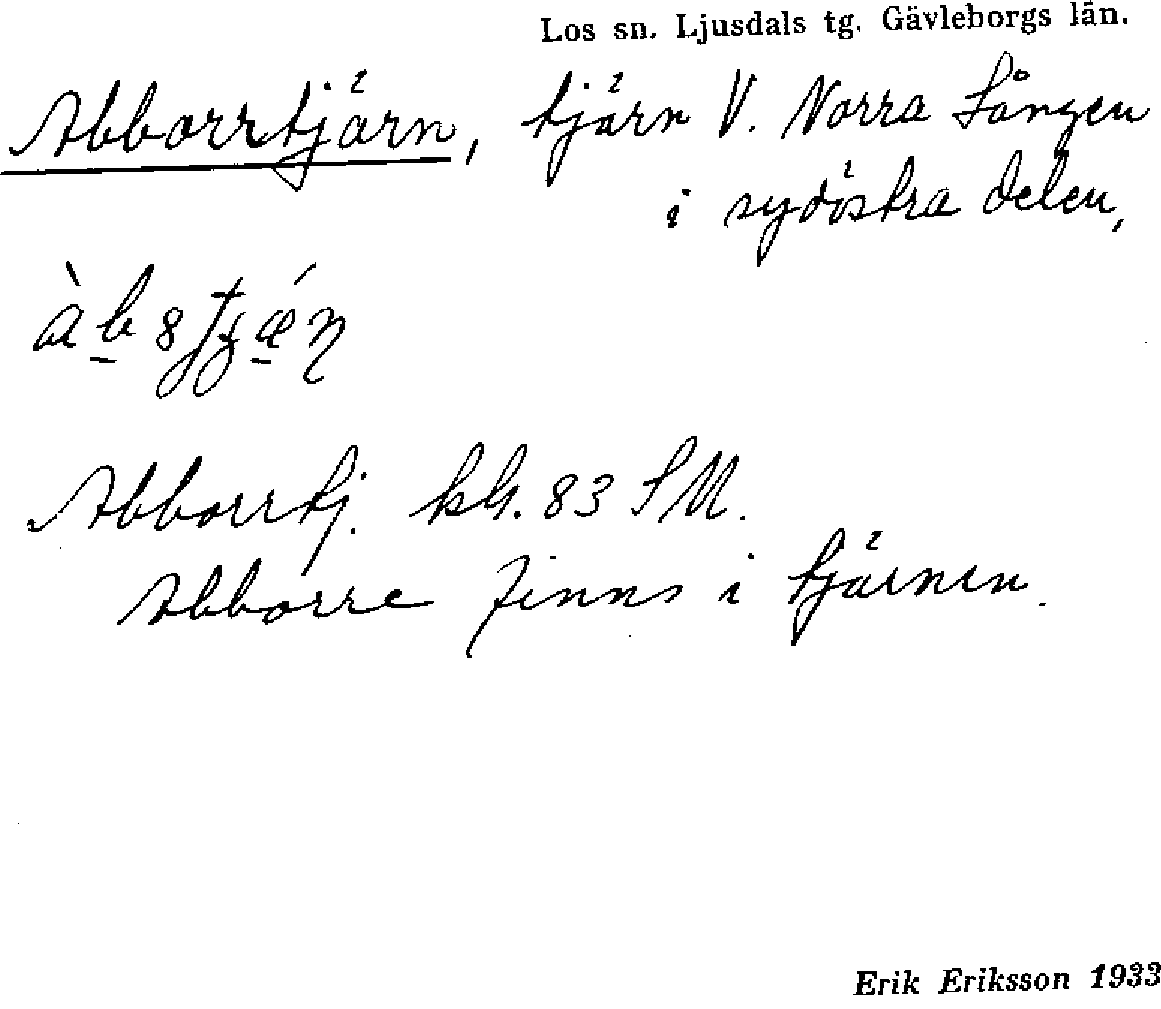 Los sn. Ljusdals tg. Gävleborgs län.
Abborrtjärn, tjärn V. Norra Lången
i sydöstra delen,
Abborrtj. kbl. 83 SM.
Abborre finns i tjärnen.
Erik Eriksson 1933